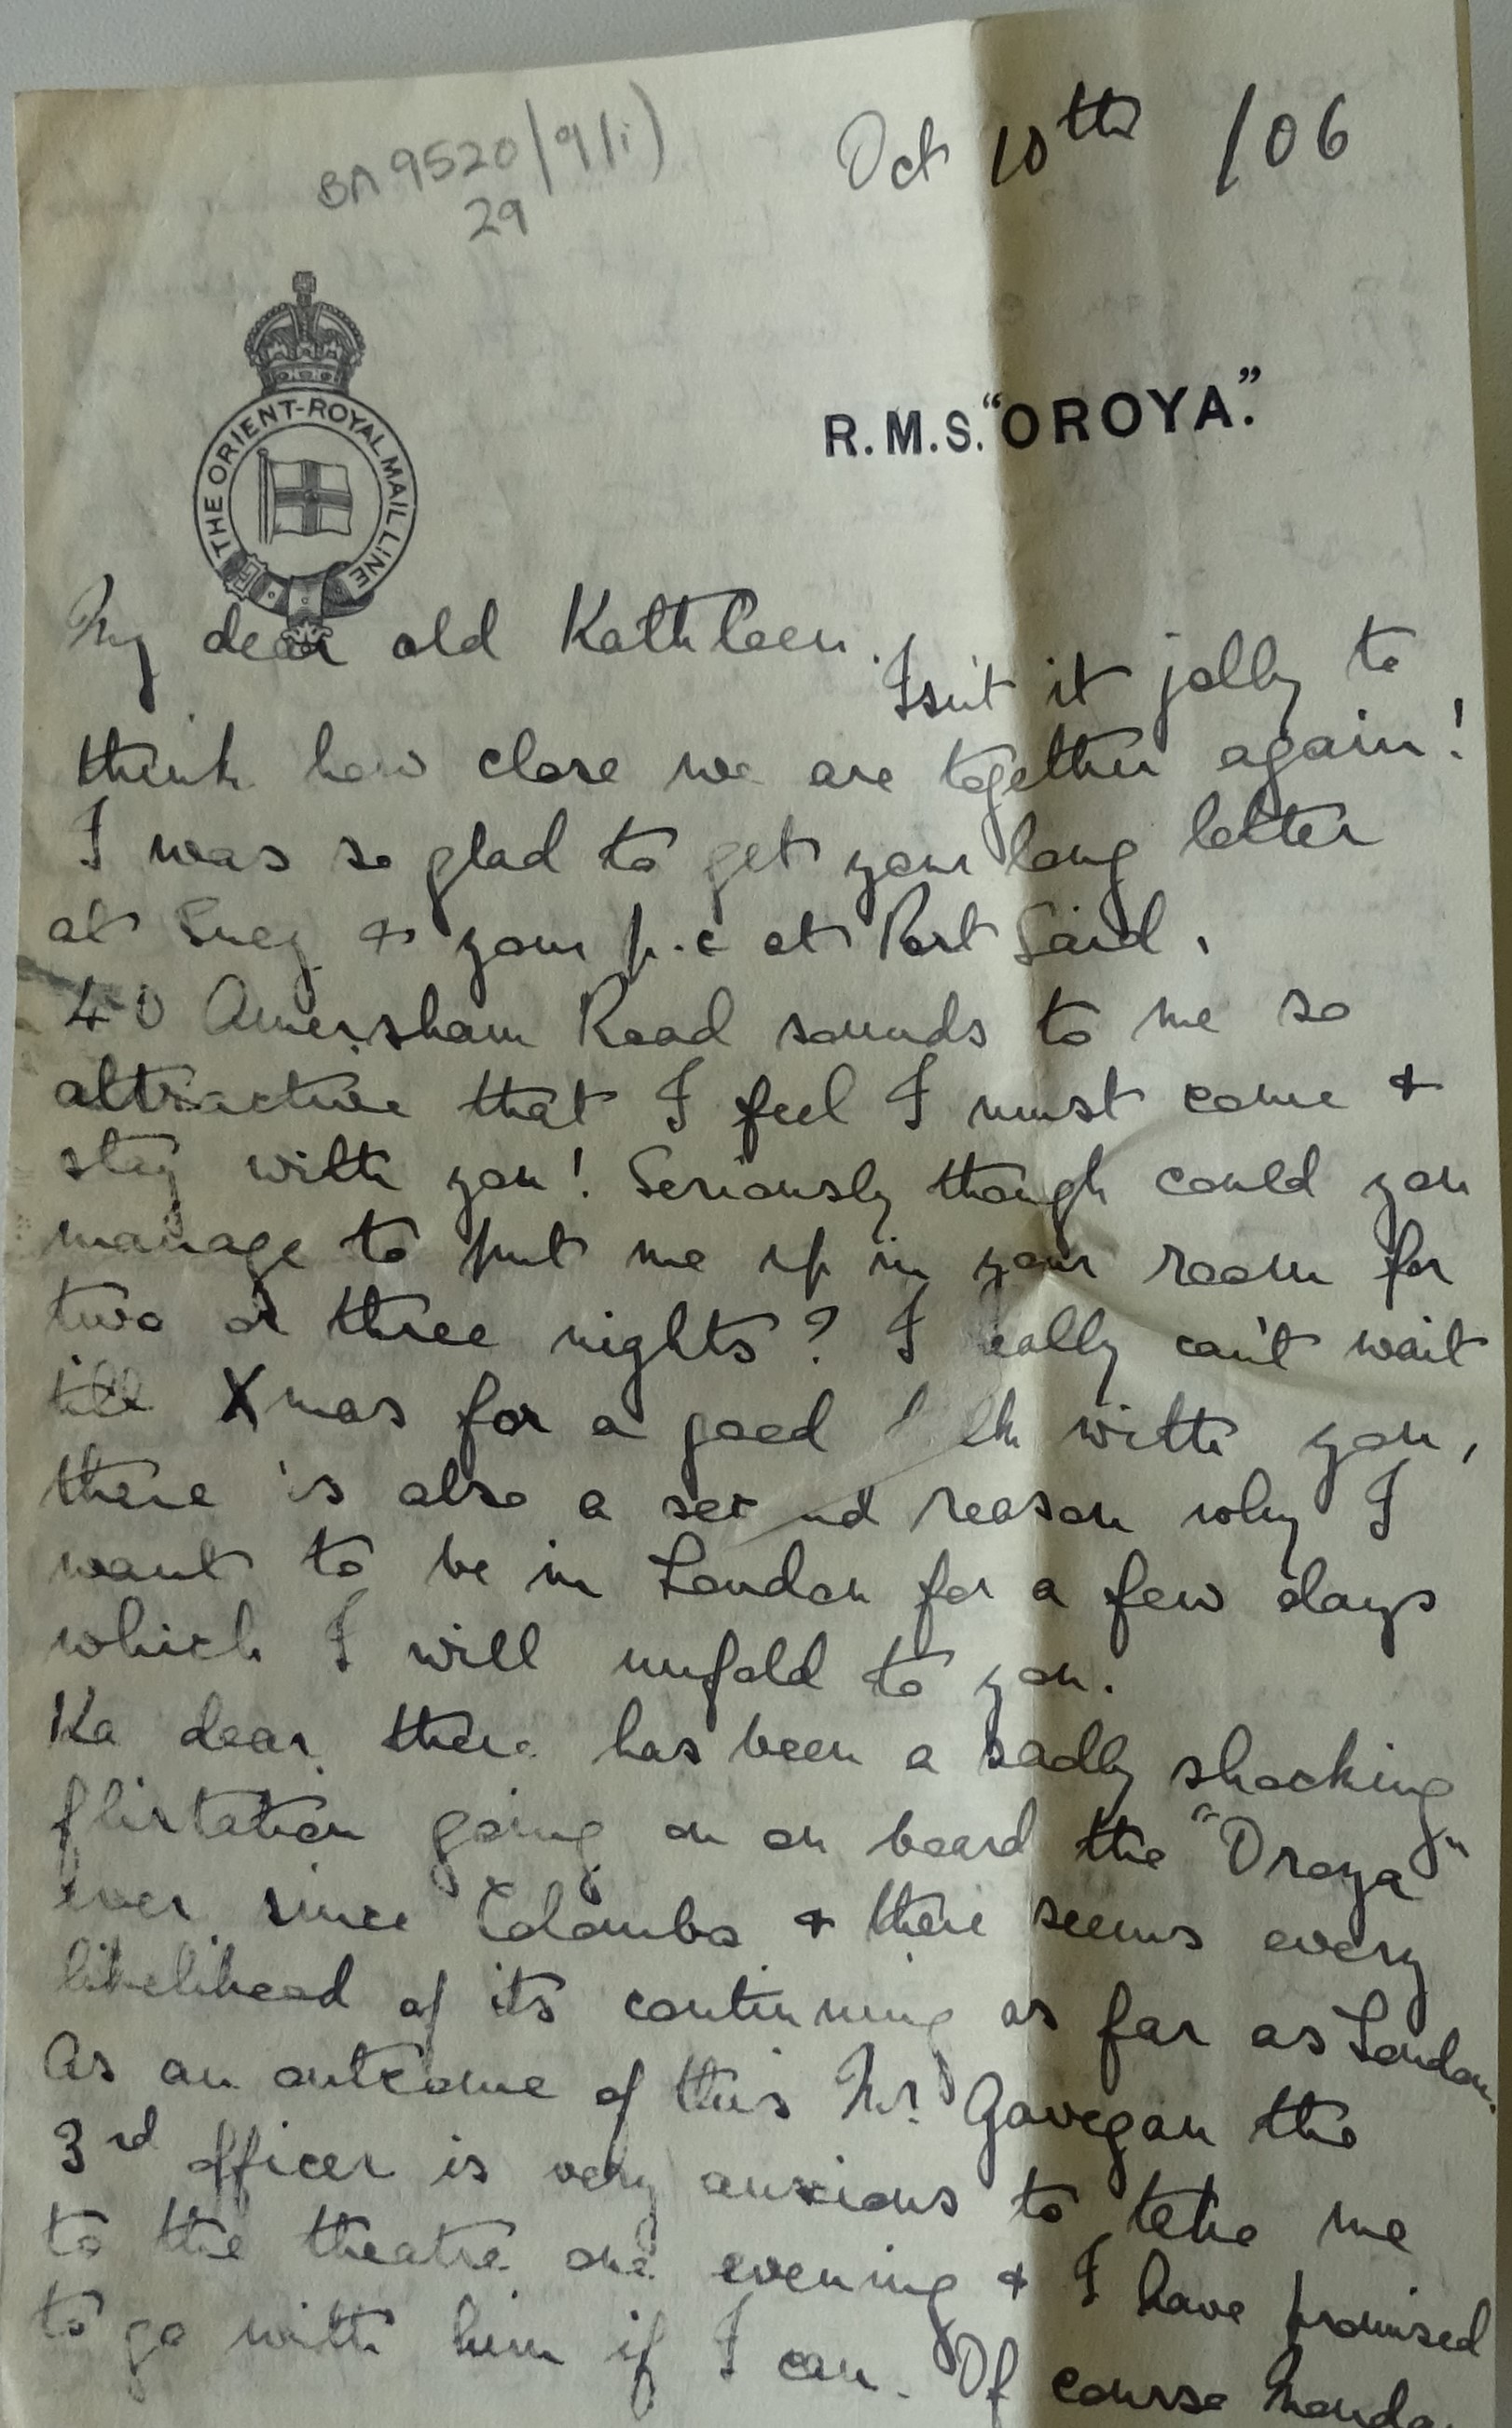 BA 9520/9(i)
29
Oct 10th /06
THE ORIENT-ROYAL MAIL LINE
R.M.S. "OROYA."
My dear old Kathleen.
Isn't it jolly to
think how close we are together again!
I was so glad to get your long letter
at Suez & your p.c at Port Said.
40 Amersham Road sounds to me so
attractive that I feel I must come &
stay with you! Seriously though could you
manage to put me up in your room for
two or three nights? I really can't wait
till Xmas for a good talk with you,
there is also a second reason why I
want to be in London for a few days
which I will unfold to you.
Ka dear there has been a sadly shocking
flirtation going on on board the "Oroya"
ever since Colombo & there seems every
likelihood of its continuing as far as London.
As an outcome of this Mr. Gavegan the
3rd officer is very anxious to take me
to the theatre one evening & I have promised
to go with him if I can. Of course